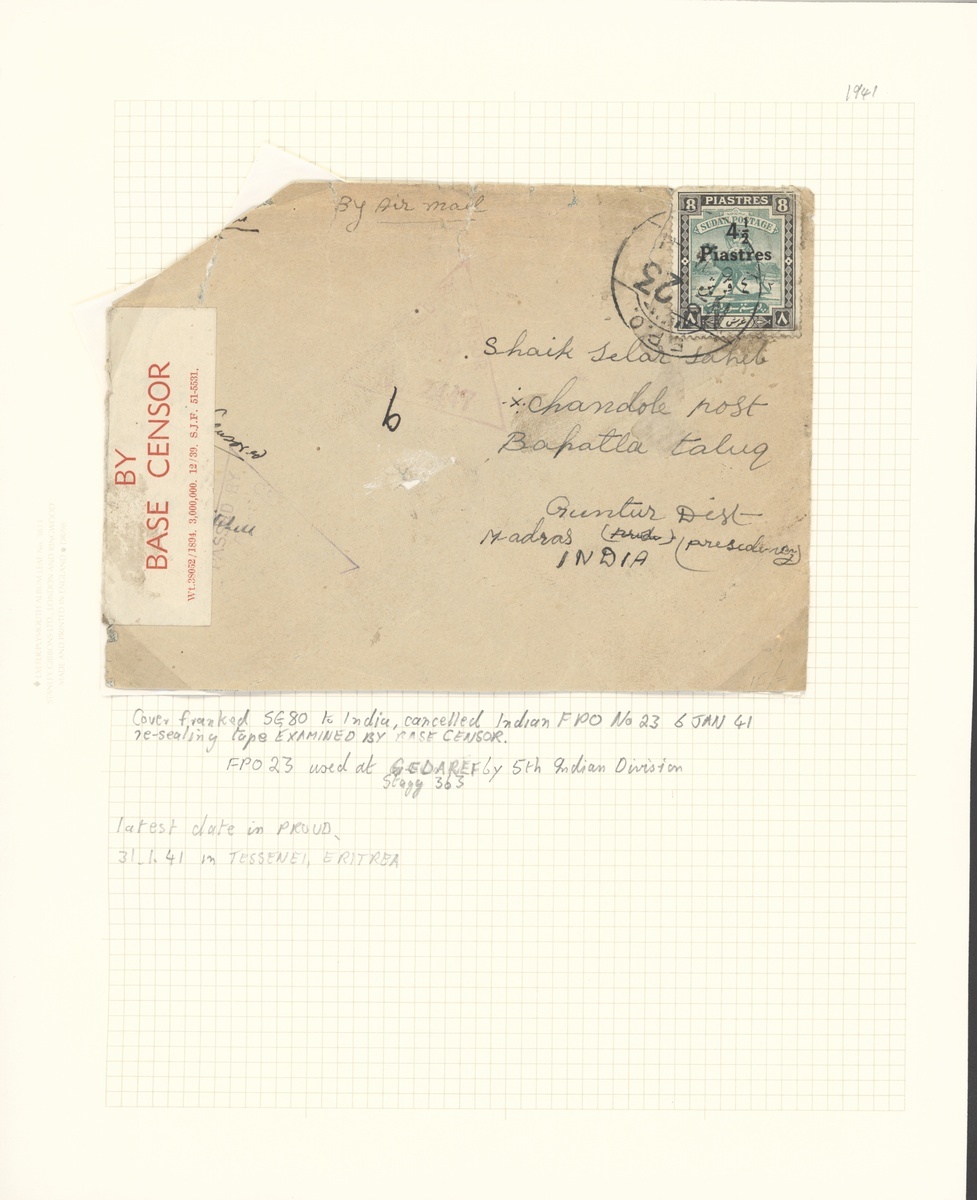 1941
By Air mail
8 PIASTRES 8
SUDAN POSTAGE
4½
Piastres
٨ ٨
F.P.O.
23
Shaik Selar Sahib
Chandole post
Bapatla taluq
6
Guntur Dist
Madras (presidency)
INDIA
BY
BASE CENSOR
Wt.38052/1894. 3,000,000. 12/39. S.J.F. 51-5531.
PASSED BY
Cover franked SG80 to India, cancelled Indian FPO No 23 6 JAN 41
re-sealing tape EXAMINED BY BASE CENSOR.
FPO 23 used at GEDAREF by 5th Indian Division
Stagg 363
latest date in PROUD,
31.1.41 in TESSENEI, ERITREA